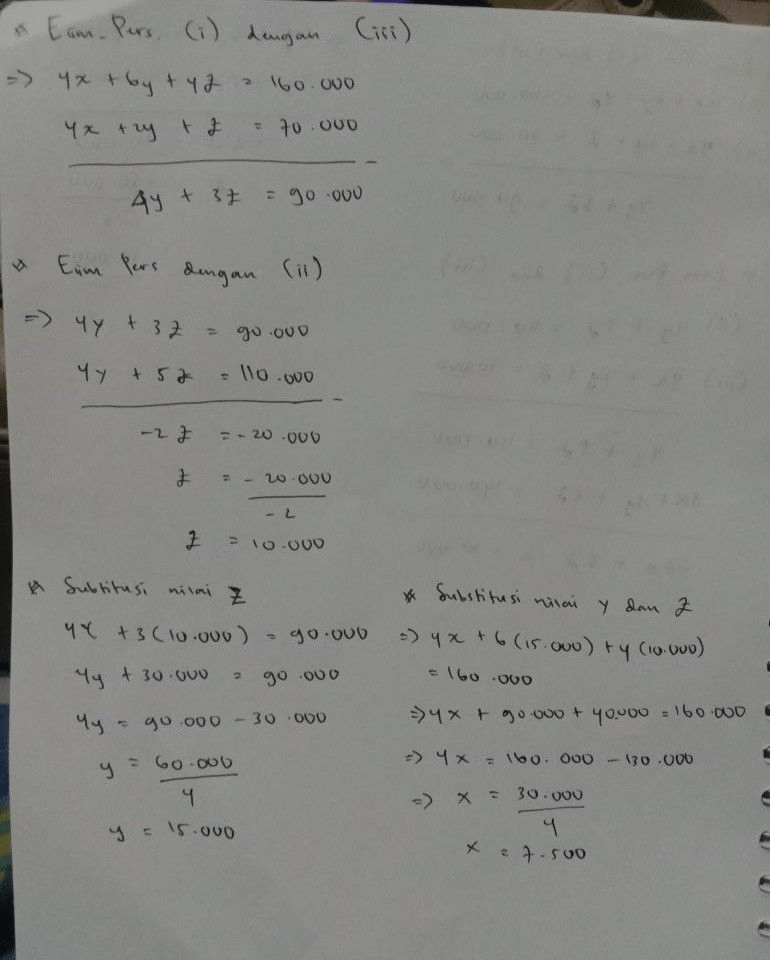 * Elim. Pers. (i) dengan (iii)
=> 4x + 6y + 4z = 160.000
4x + 2y + z = 70.000
4y + 3z = 90.000
* Elim Pers dengan (ii)
=> 4y + 3z = 90.000
4y + 5z = 110.000
-2z = -20.000
z = -20.000
-2
z = 10.000
* Subtitusi nilai z
4y + 3(10.000) = 90.000
4y + 30.000 = 90.000
4y = 90.000 - 30.000
y = 60.000
4
y = 15.000
* Substitusi nilai y dan z
=> 4x + 6(15.000) + 4(10.000)
= 160.000
=> 4x + 90.000 + 40.000 = 160.000
=> 4x = 160.000 - 130.000
=> x = 30.000
4
x = 7.500